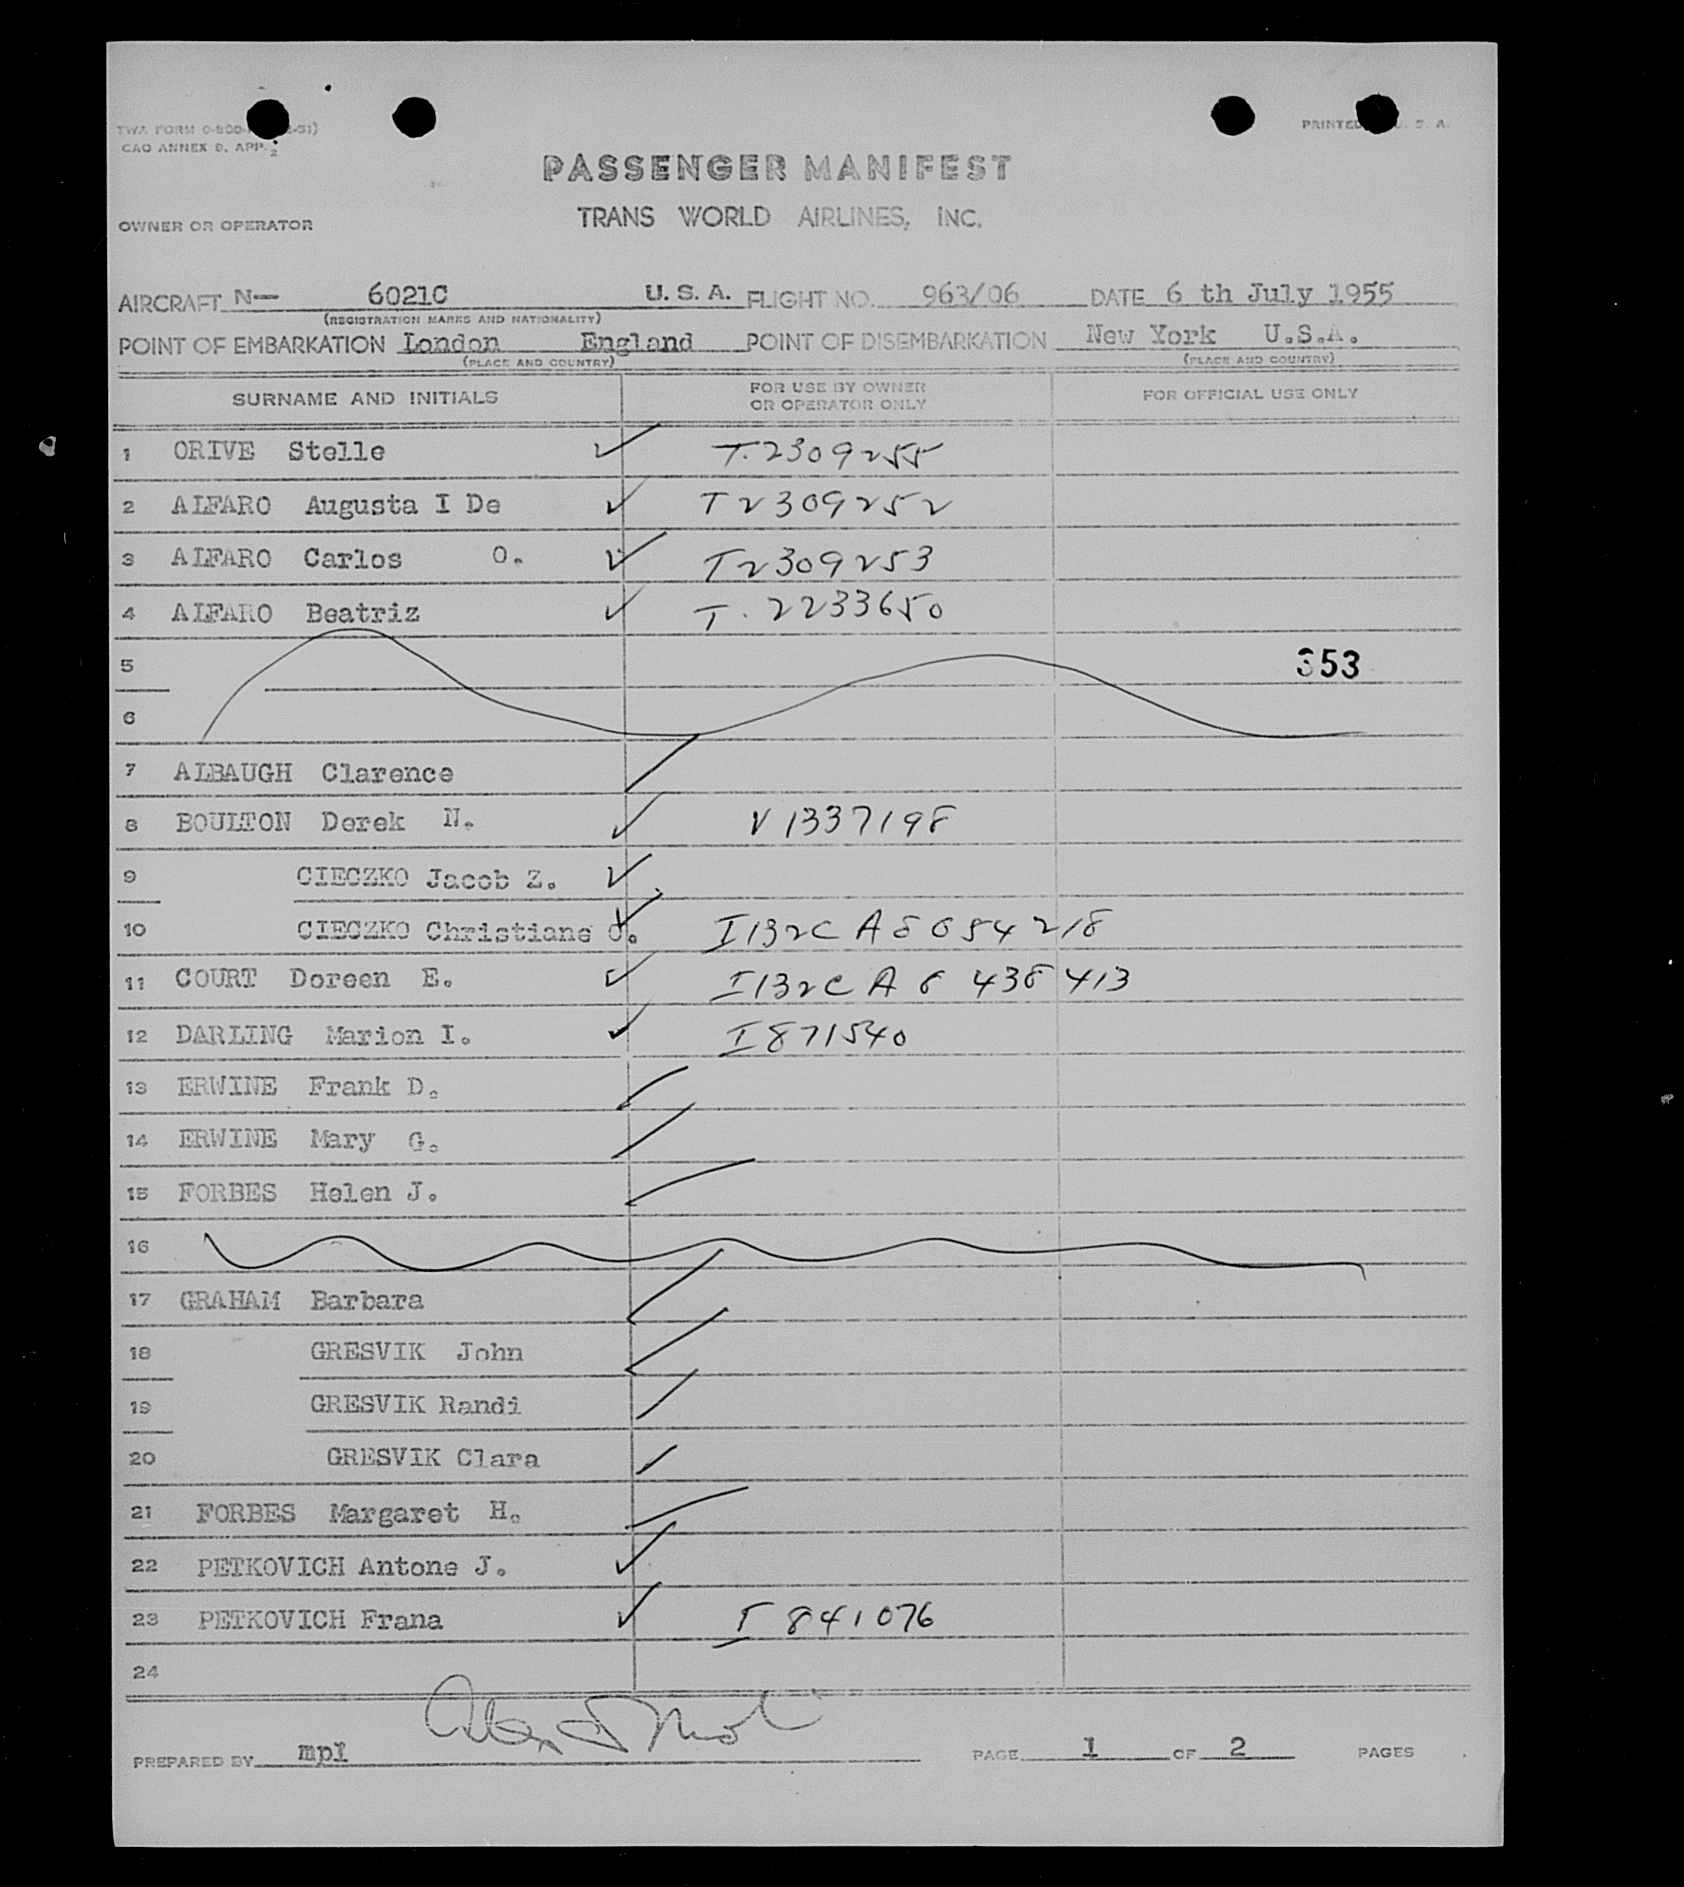 TWA FORM
CAO ANNEX 9, APP. 2
PRINTED U. S. A.
PASSENGER MANIFEST
OWNER OR OPERATOR
TRANS WORLD AIRLINES, INC.
AIRCRAFT N— 6021C U.S.A. FLIGHT NO. 963/06 DATE 6 th July 1955
(REGISTRATION MARKS AND NATIONALITY)
POINT OF EMBARKATION London England POINT OF DISEMBARKATION New York U.S.A.
(PLACE AND COUNTRY) (PLACE AND COUNTRY)
SURNAME AND INITIALS FOR USE BY OWNER OR OPERATOR ONLY FOR OFFICIAL USE ONLY
1 ORIVE Stelle T.2309255
2 ALFARO Augusta I De T2309252
3 ALFARO Carlos O. T2309253
4 ALFARO Beatriz T.2233650
5 353
6
7 ALBAUGH Clarence
8 BOULTON Derek N. V1337198
9 CIECZKO Jacob Z.
10 CIECZKO Christiane I132C A8
11 COURT Doreen E. I132C A 438 413
12 DARLING Marion I. I871540
13 ERWINE Frank D.
14 ERWINE Mary G.
15 FORBES Helen J.
16
17 GRAHAM Barbara
18 GRESVIK John
19 GRESVIK Randi
20 GRESVIK Clara
21 FORBES Margaret H.
22 PETKOVICH Antone J.
23 PETKOVICH Frana I 841076
24
PREPARED BY mpl PAGE 1 OF 2 PAGES